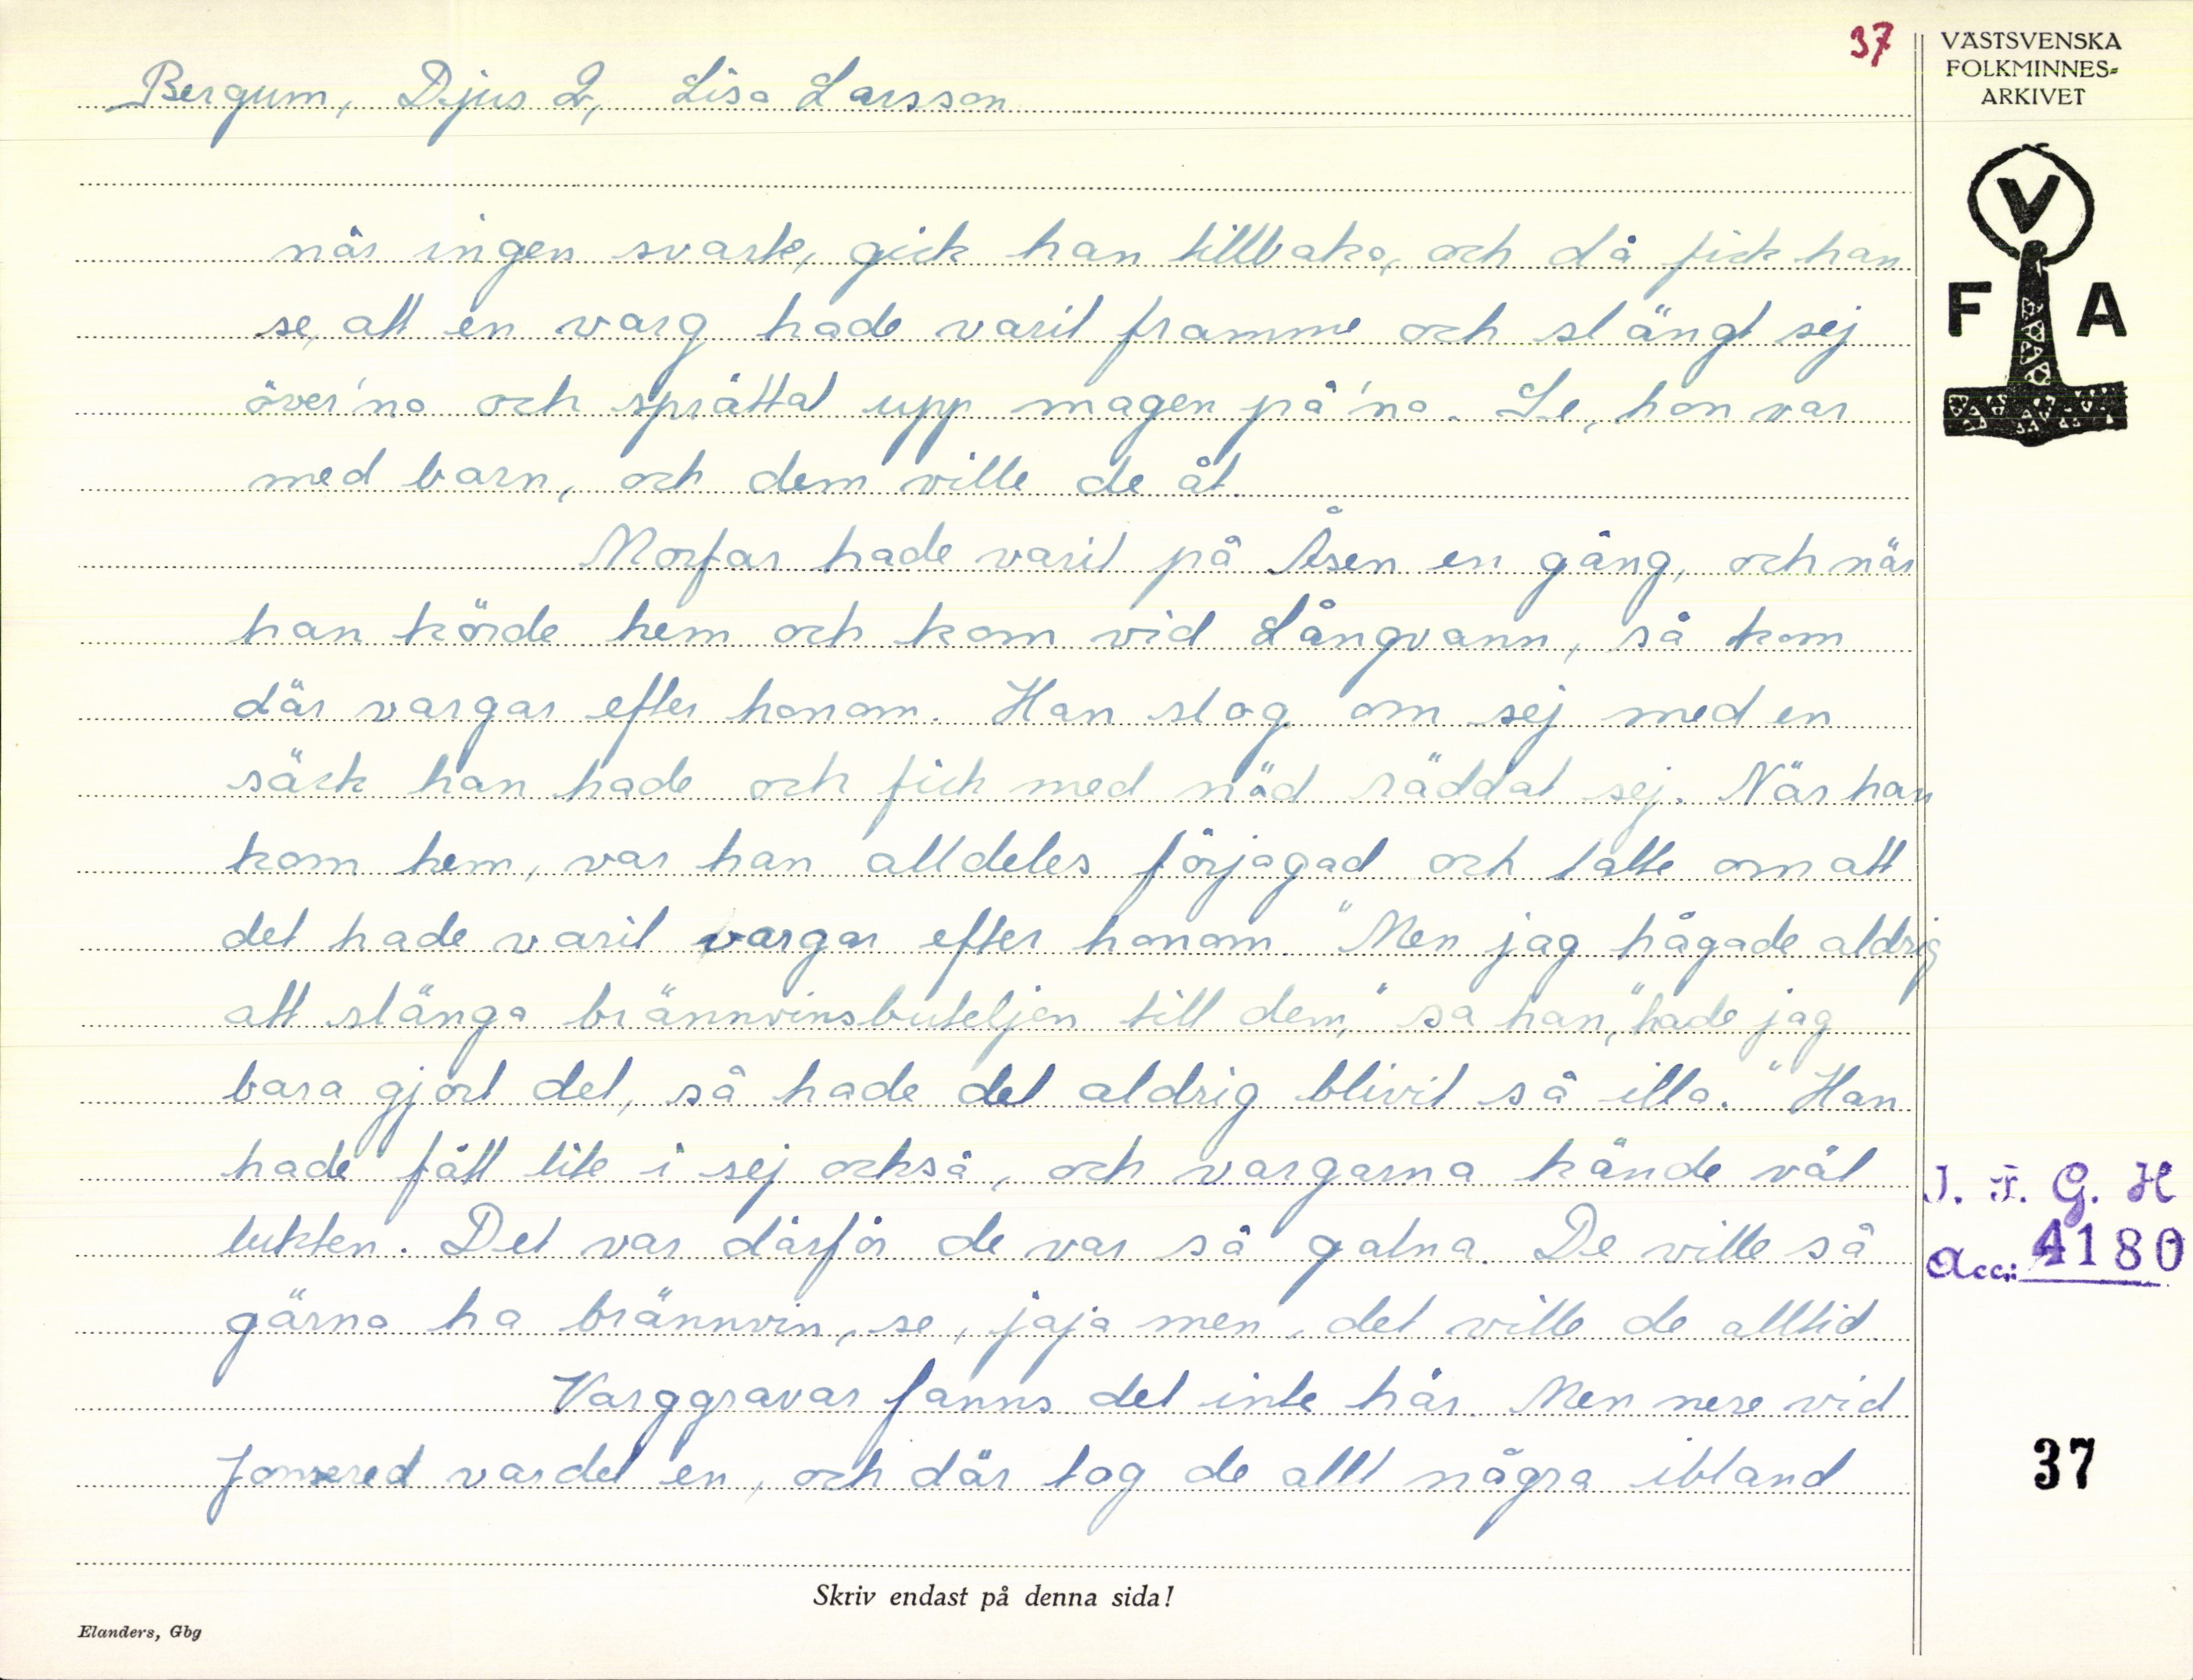 37
VÄSTSVENSKA
FOLKMINNES-
ARKIVET
Bergum, Djus 2, Lisa Larsson
V
F A
när ingen svarte, gick han tillbaka, och då fick han
se, att en varg hade varit framme och slängt sej
över'na och sprättat upp magen på'na. Se, hon var
med barn, och dem ville de åt.
Morfar hade varit på Åsen en gång, och när
han körde hem och kom vid Långvann, så kom
där vargar efter honom. Han slog om sej med en
säck han hade och fick med nöd räddat sej. När han
kom hem, var han alldeles förjagad och talte om att
det hade varit vargar efter honom. "Men jag hågade aldrig
att slänga brännvinsbuteljen till dem," sa han, "hade jag
bara gjort det, så hade det aldrig blivit så illa." Han
hade fått lite i sej också, och vargarna kände väl
lukten. Det var därför de var så galna. De ville så
gärna ha brännvin, se, jaja men, det ville de alltid.
Varggravar fanns det inte här. Men nere vid
Jonsered var det en, och där tog de allt några ibland
I. F. G. H
Acc: 4180
37
Skriv endast på denna sida!
Elanders, Gbg